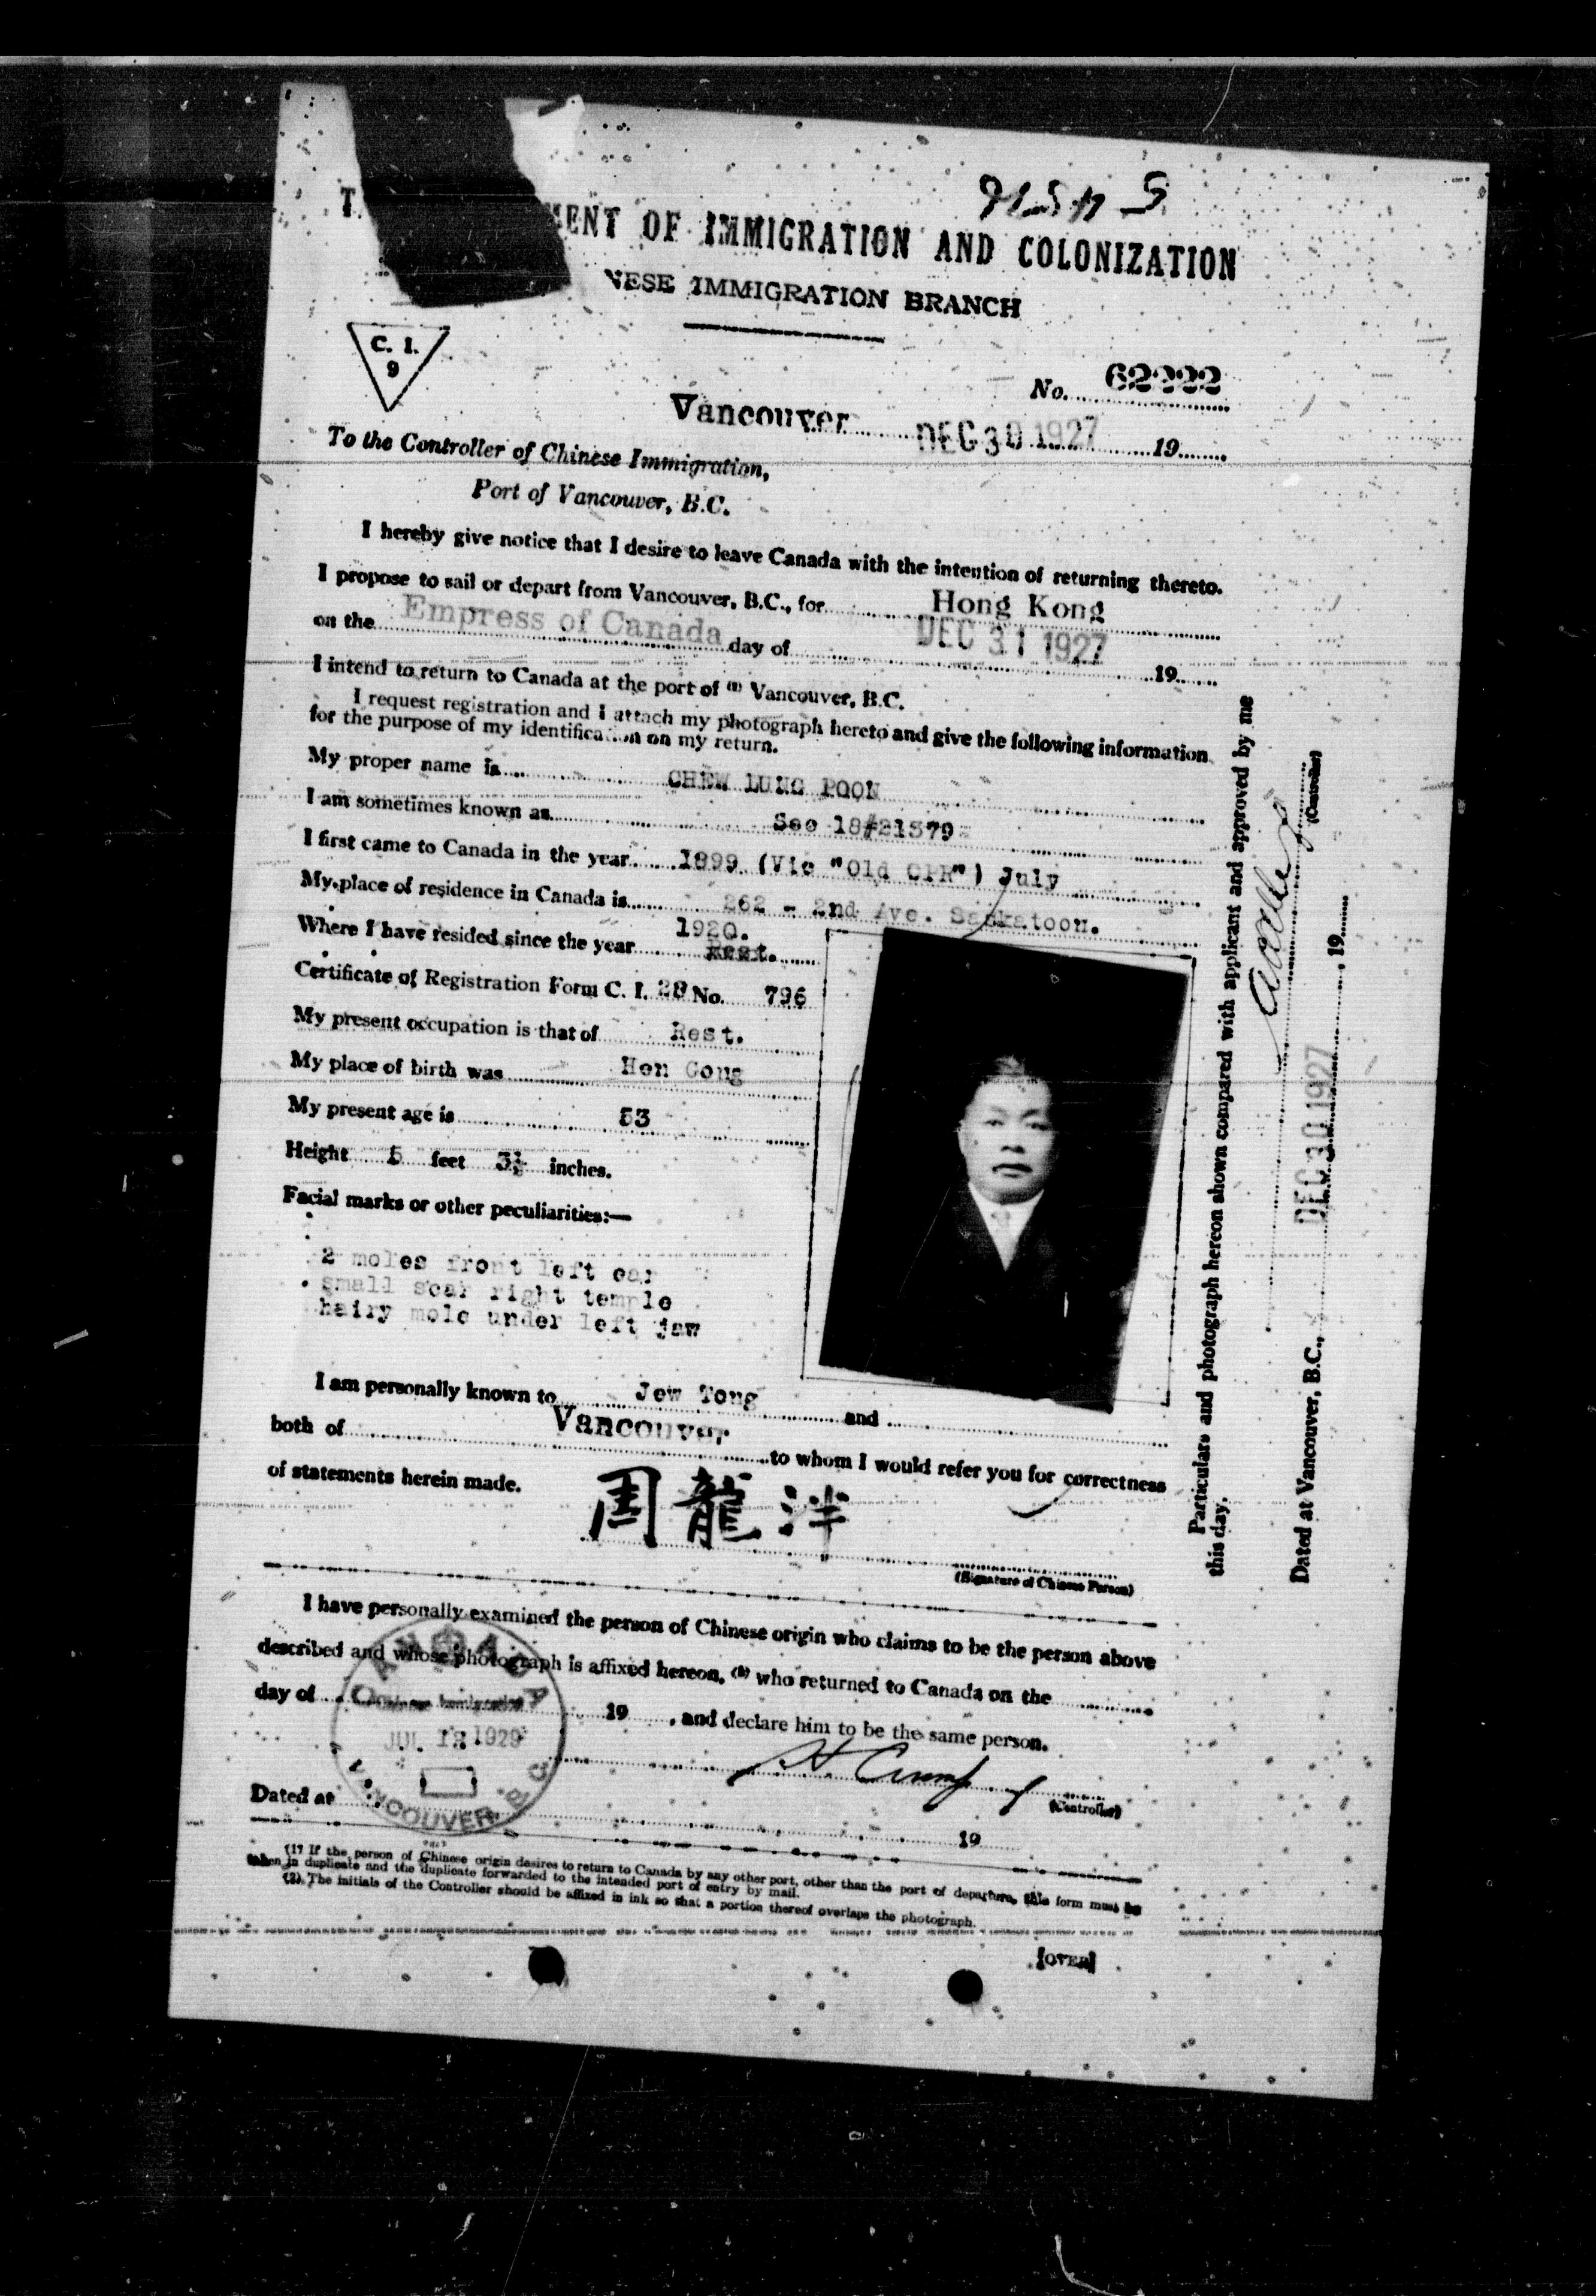 T
MENT OF IMMIGRATION AND COLONIZATION
NESE IMMIGRATION BRANCH
C. I.
9
No. 62222
Vancouver DEC 30 1927 19
To the Controller of Chinese Immigration,
Port of Vancouver, B.C.
I hereby give notice that I desire to leave Canada with the intention of returning thereto.
I propose to sail or depart from Vancouver, B.C., for Hong Kong
on the Empress of Canada day of DEC 31 1927 19
I intend to return to Canada at the port of (1) Vancouver, B.C.
I request registration and I attach my photograph hereto and give the following information
for the purpose of my identification on my return.
My proper name is CHEW LUNG POON
I am sometimes known as See 18#21379
I first came to Canada in the year 1899 (Vic "Old CPR") July
My place of residence in Canada is 262 - 2nd Ave. Saskatoon.
Where I have resided since the year 1920.
Certificate of Registration Form C. I. 28 No. 796
My present occupation is that of Rest.
My place of birth was Hon Gong
My present age is 53
Height 5 feet 3½ inches.
Facial marks or other peculiarities:—
2 moles front left ear
small scar right temple
hairy mole under left jaw
I am personally known to Jow Tong and
both of Vancouver to whom I would refer you for correctness
of statements herein made.
周龍泮
(Signature of Chinese Person)
I have personally examined the person of Chinese origin who claims to be the person above
described and whose photograph is affixed hereon, (2) who returned to Canada on the
day of 19 , and declare him to be the same person.
(Controller)
Dated at 19
CANADA
Chinese Immigration
JUL 12 1929
VANCOUVER B C
(1) If the person of Chinese origin desires to return to Canada by any other port, other than the port of departure, this form must be
taken in duplicate and the duplicate forwarded to the intended port of entry by mail.
(2) The initials of the Controller should be affixed in ink so that a portion thereof overlaps the photograph.
[OVER]
Particulars and photograph hereon shown compared with applicant and approved by me
this day.
(Controller)
Dated at Vancouver, B.C., DEC 30 1927 , 19